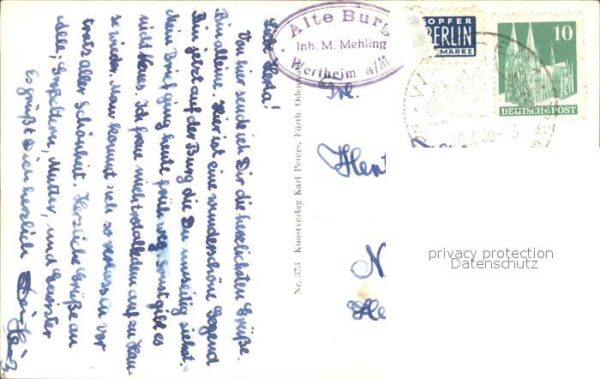 Liebe Herta!
Von hier sende ich Dir die herzlichsten Grüße.
Bin alleine. Hier ist eine wunderschöne Gegend
Bin jetzt auf der Burg die Du umseitig siehst.
Mein Brief ging heute früh weg. Sonst gibt es
nicht Neues. Ich freue mich trotzdem auf zu Hau-
se wieder. Man kommt sich so vor
trotz aller Schönheit. Herzliche Grüße an
alle, Großeltern, Mutter, und Günster
Es grüßt Dich herzlich Dein
Nr. 373 Kunstverlag Karl Peters, Fürth Oden
Alte Burg
Inh. M. Mehling
Wertheim a/M
NOTOPFER
2 BERLIN
STEUERMARKE
10
DEUTSCHE POST
Frl.
N
privacy protection
Datenschutz